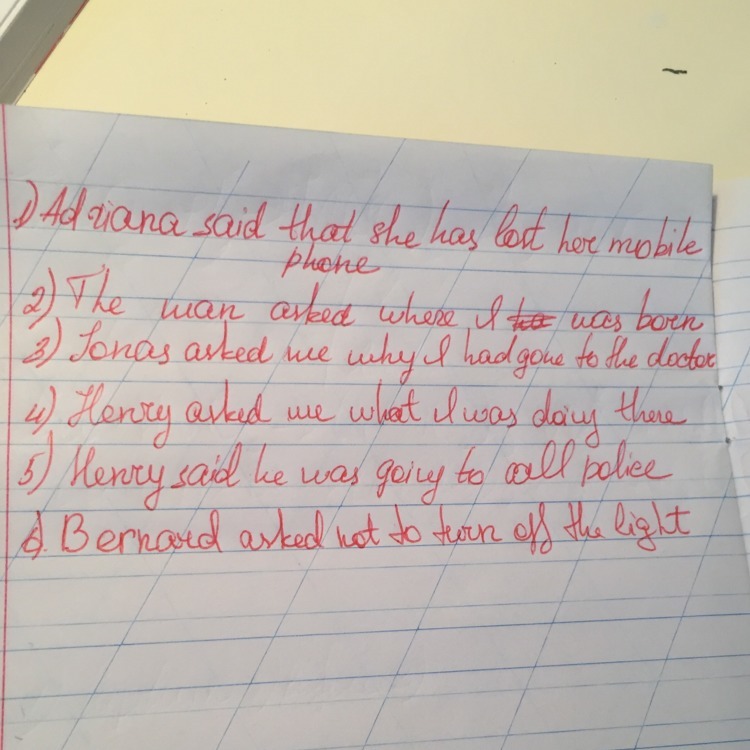 1) Adriana said that she has lost her mobile
phone
2) The man asked where I was born
3) Jonas asked me why I had gone to the doctor
4) Henry asked me what I was doing there
5) Henry said he was going to call police
6. Bernard asked not to turn off the light